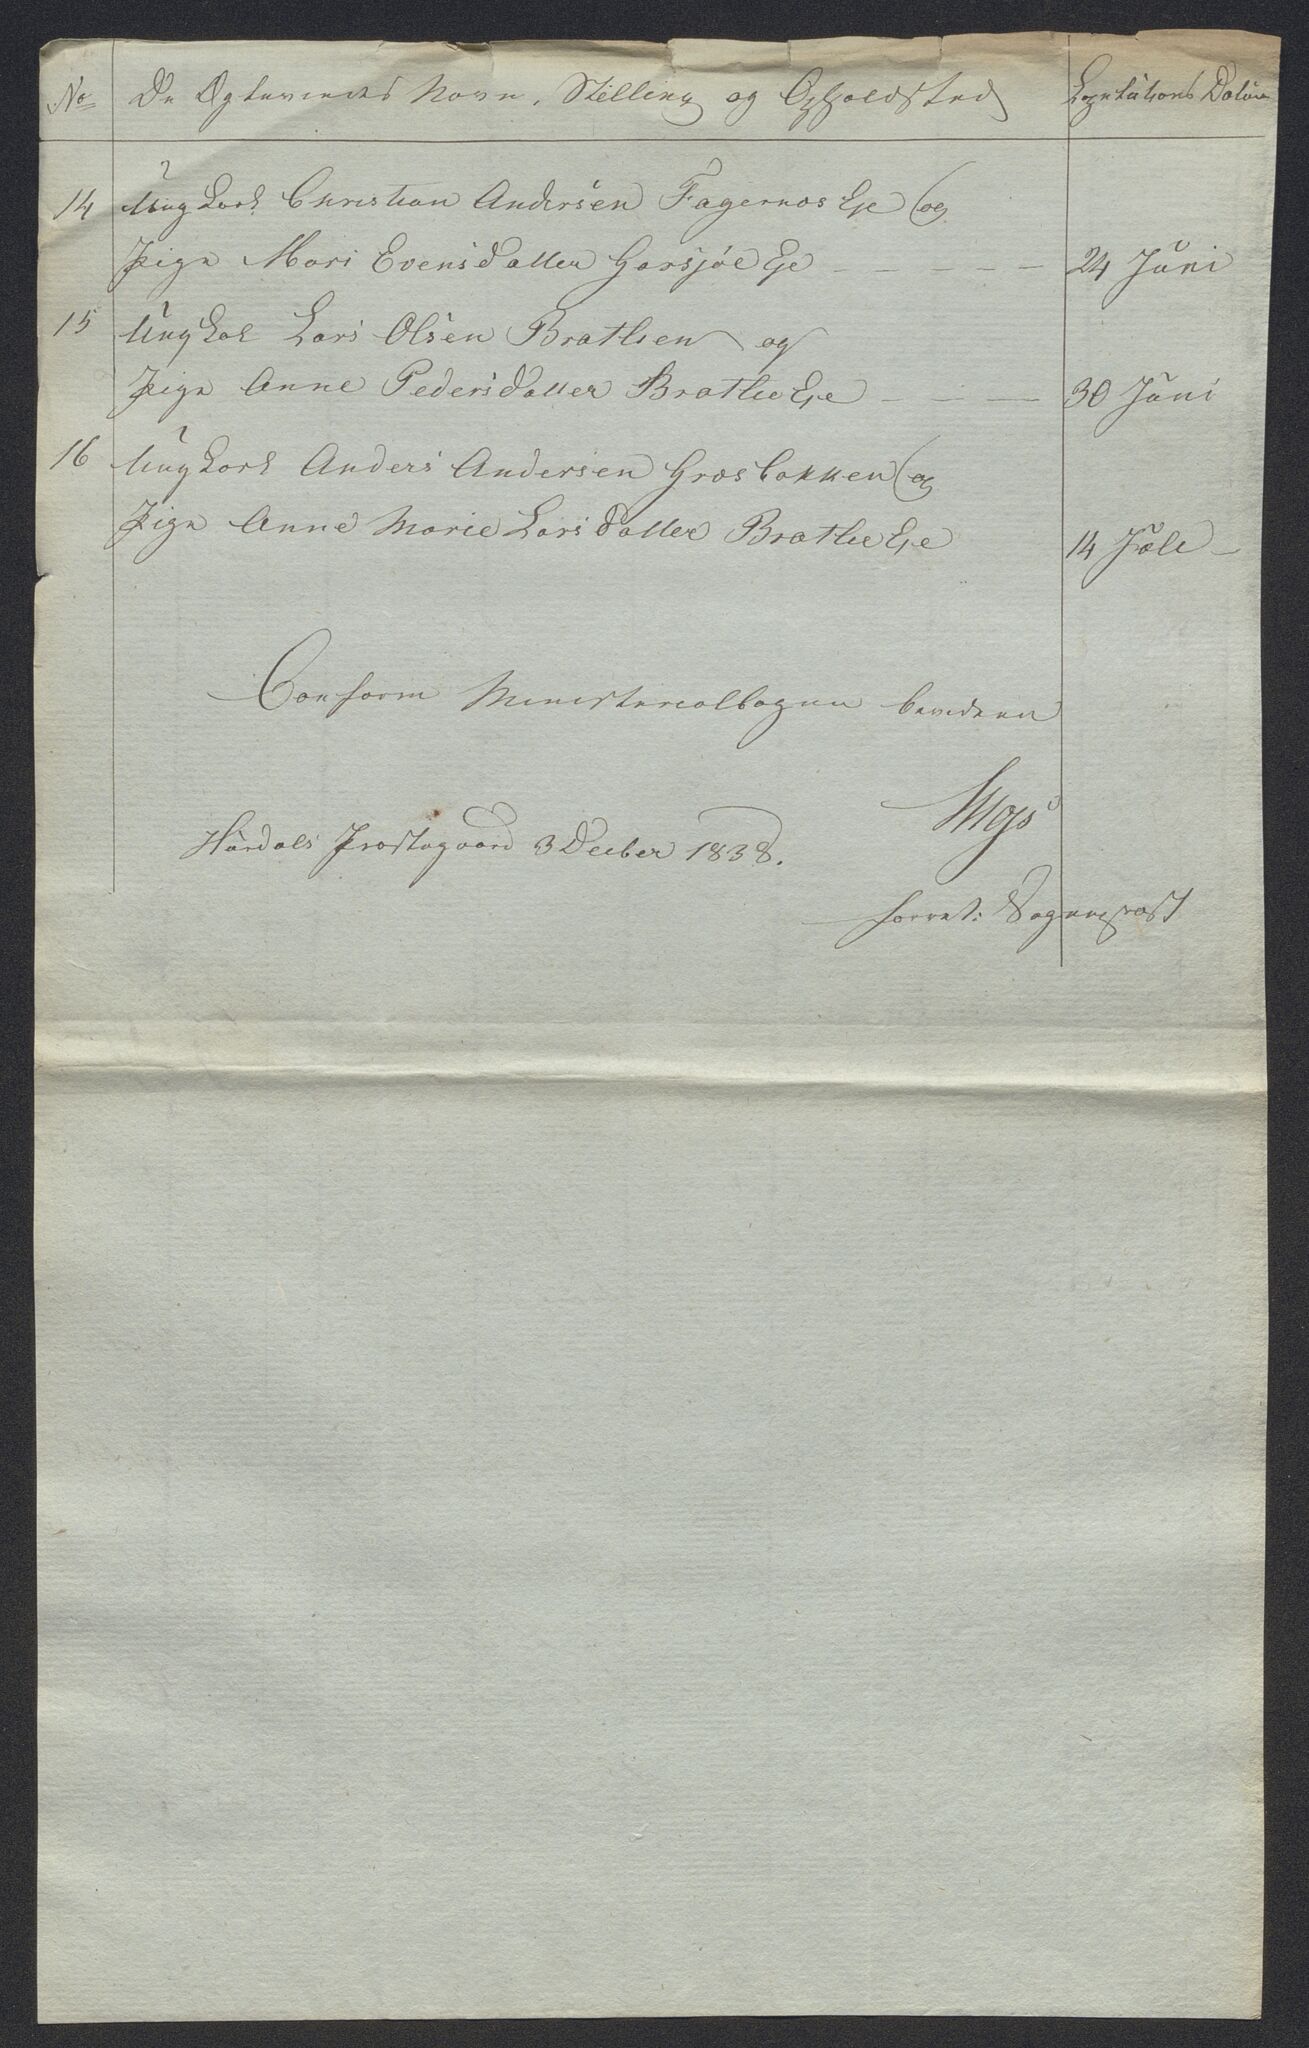 No De Egtevirtes Navn, Stilling og Opholdsted Copulations Datum
14 Ungkarl Christian Andersen Fagernæs Eje og
Pige Mari Evensdatter Garsjøe Eje – – – – – 24 Juni
15 Ungkal Lars Olsen Bratlien og
Pige Anne Pedersdatter Bratlie Eje – – – 30 Juni
16 Ungkarl Anders Andersen Græsbakken og
Pige Anne Marie Larsdatter Bratlie Eje 14 Jule –
Conform Ministerialbogen bevidner
Hurdals Præstegaard 3 Decber 1838.
forret: Sognepræst